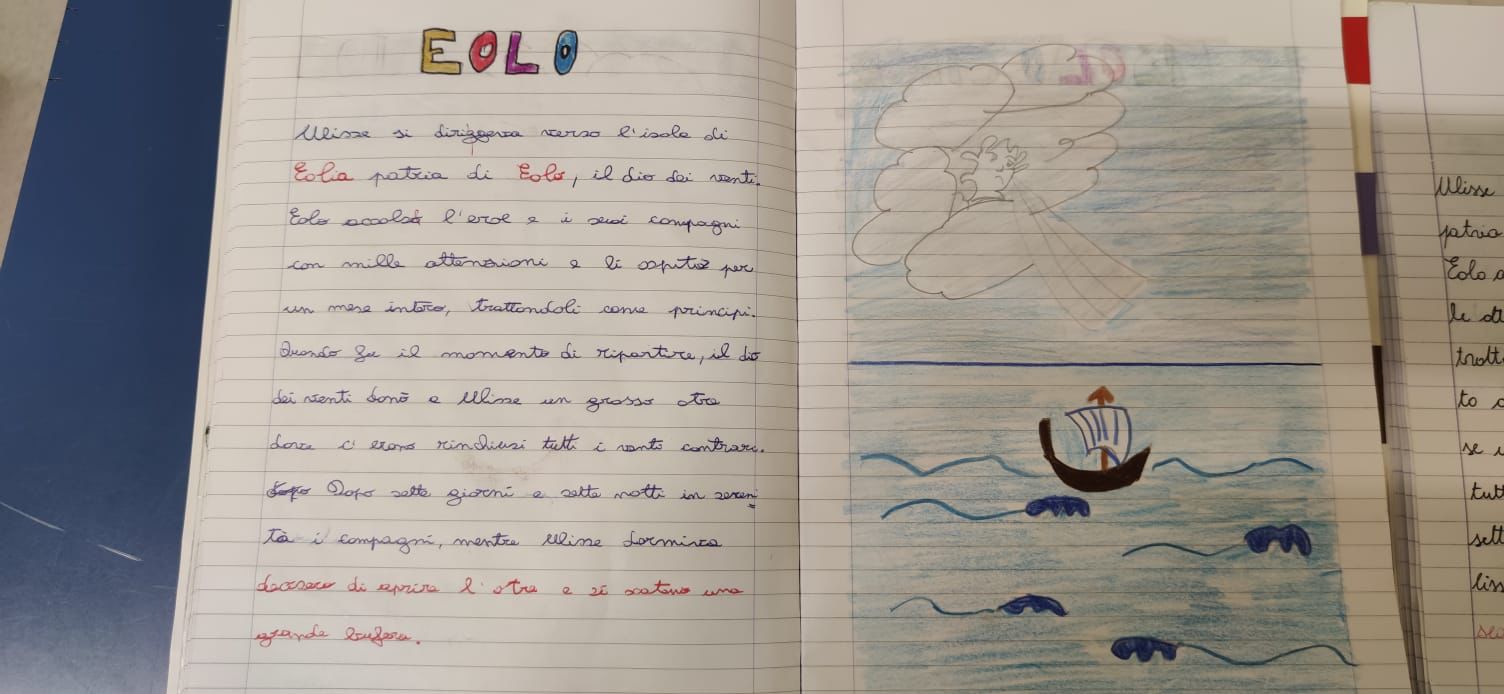 EOLO
Ulisse si dirigeva verso l'isola di
Eolia patria di Eolo, il dio dei venti.
Eolo accolse l'eroe e i suoi compagni
con mille attenzioni e li ospitò per
un mese intero, trattandoli come principi.
Quando fu il momento di ripartire, il dio
dei venti donò a Ulisse un grosso otre
dove c'erano rinchiusi tutti i vento contrari.
Dopo Dopo sette giorni e sette notti in sereni
tà i compagni, mentre Ulisse dormiva
decisero di aprire l'otre e si scatenò una
grande bufera.
Ulisse
patria
Eolo a
le att
tratt
to d
se u
tutt
sett
liss